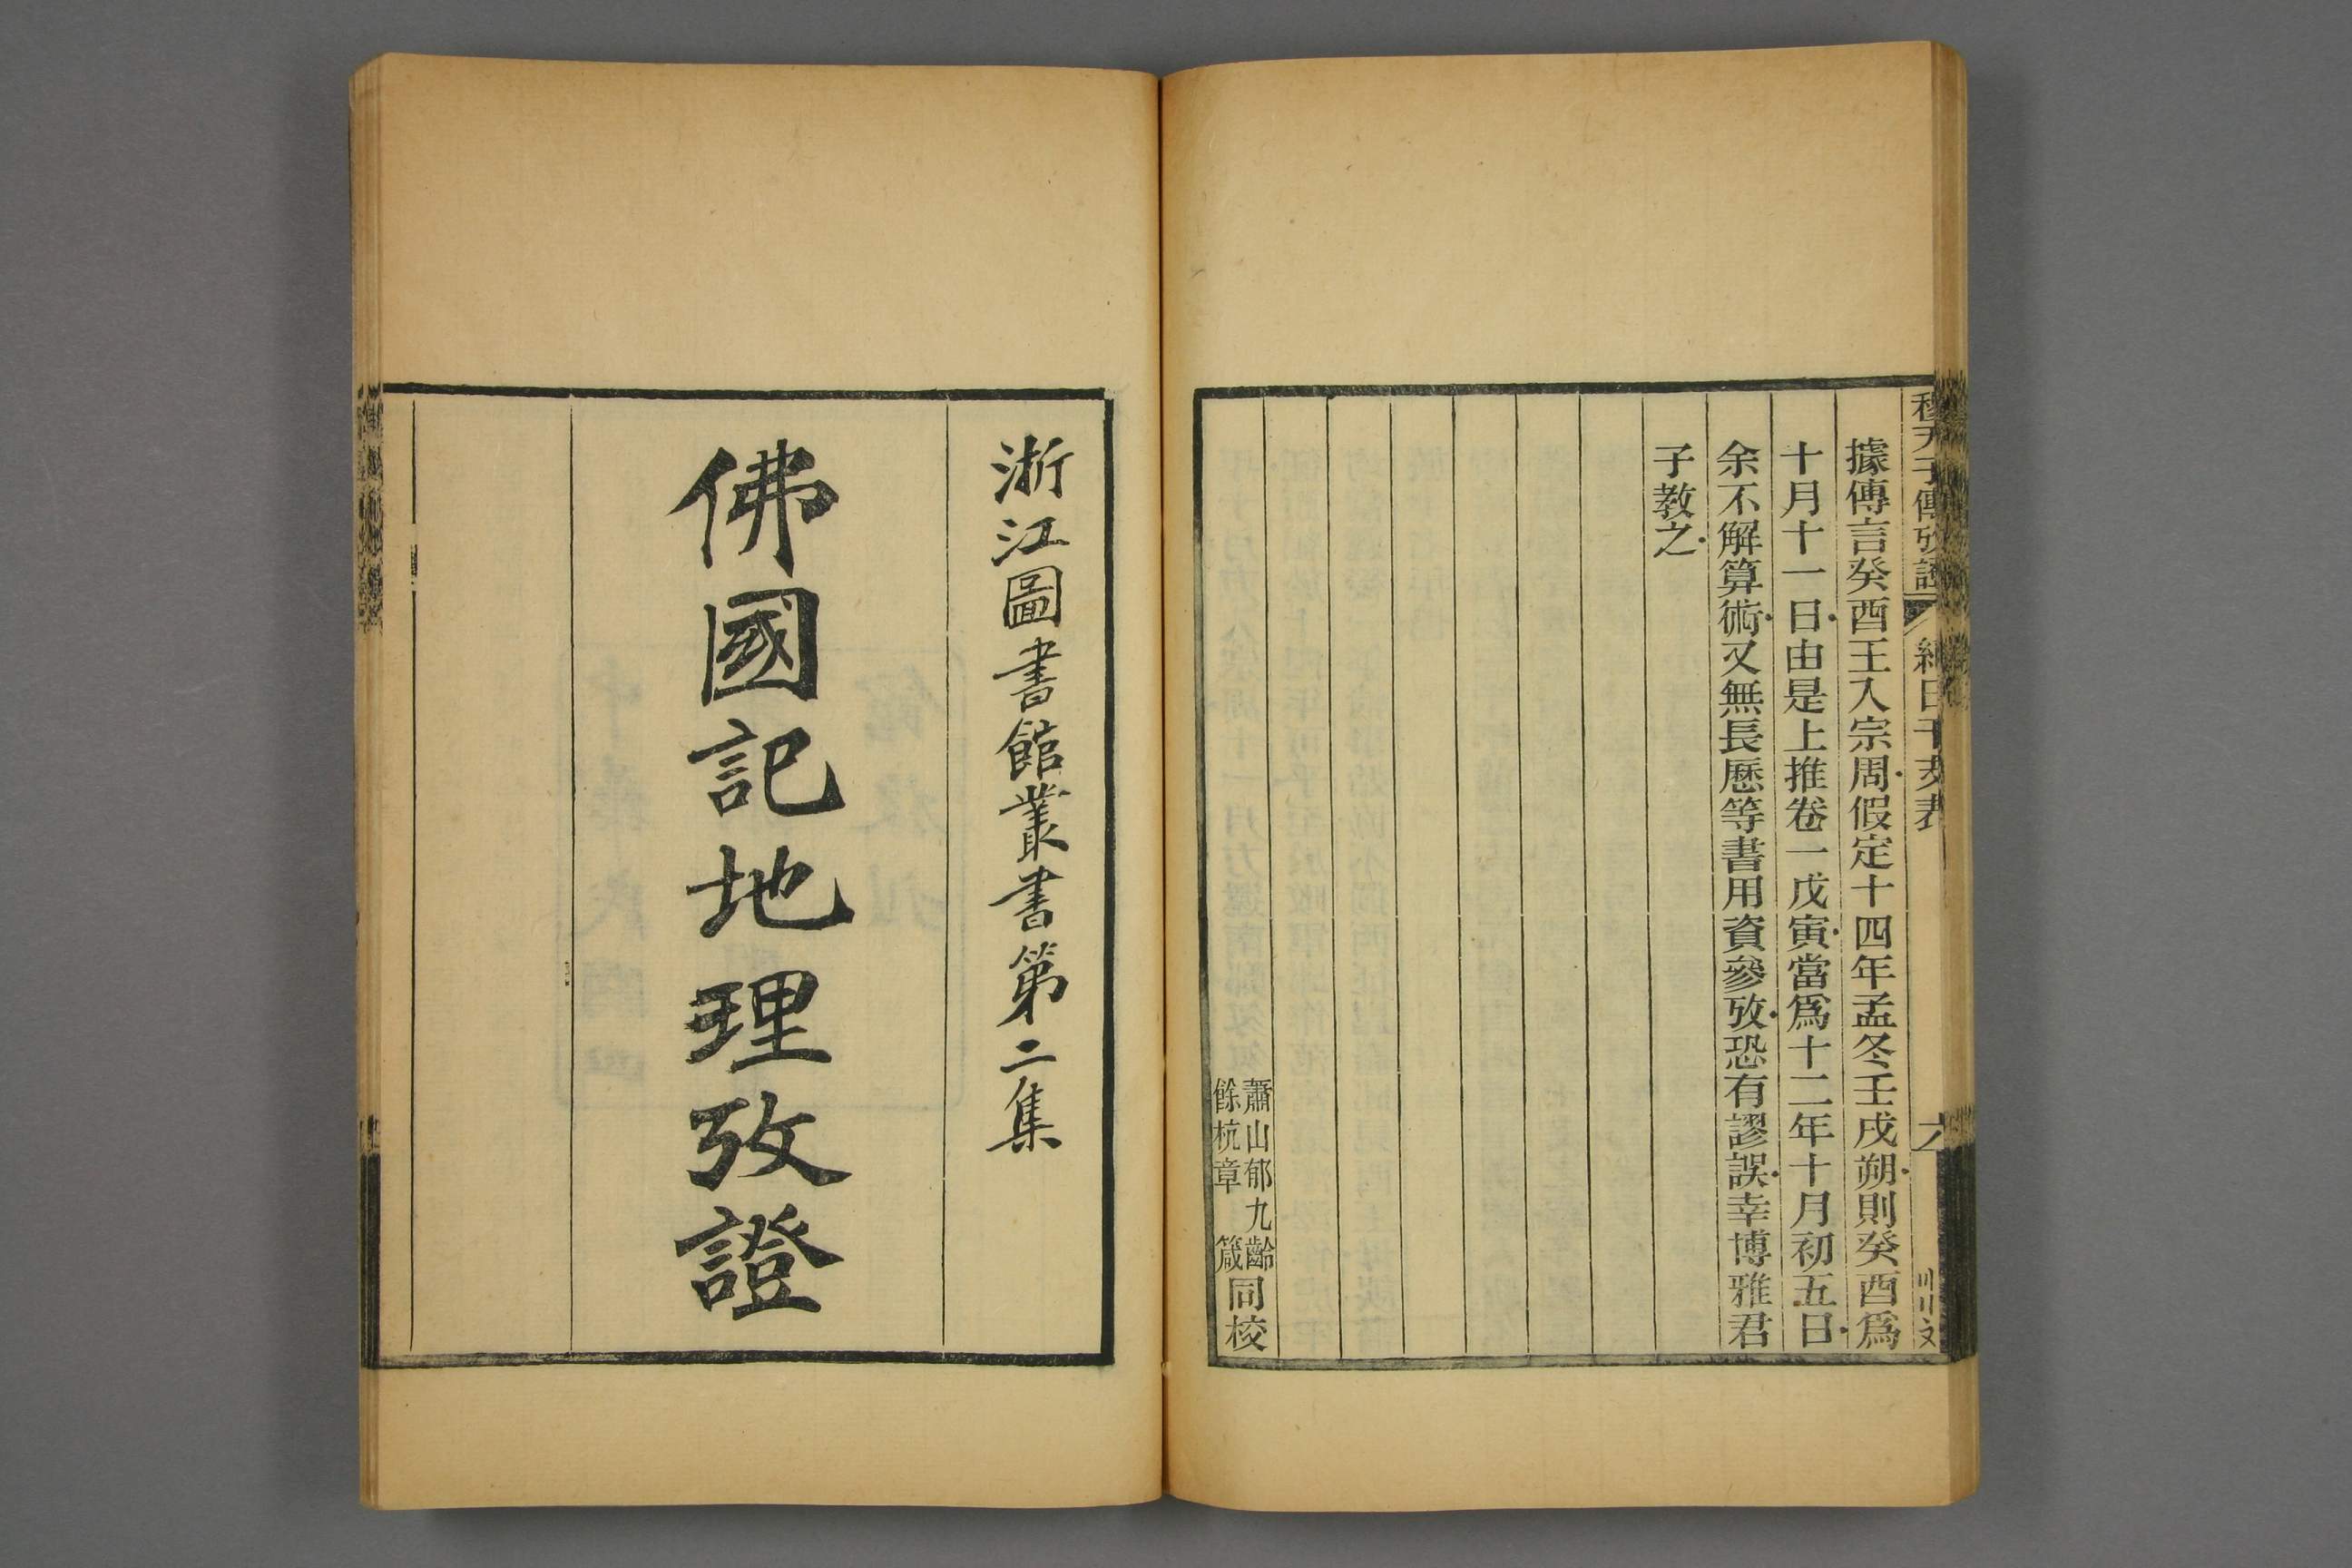 據傳言癸酉王入宗周假定十四年孟冬壬戌朔則癸酉爲
十月十一日由是上推卷一戊寅當爲十二年十月初五日
余不解算術又無長厯等書用資參攷恐有謬誤幸博雅君
子教之
蕭山郁九齡
餘杭章箴
同校
浙江圖書館叢書第二集
佛國記地理攷證